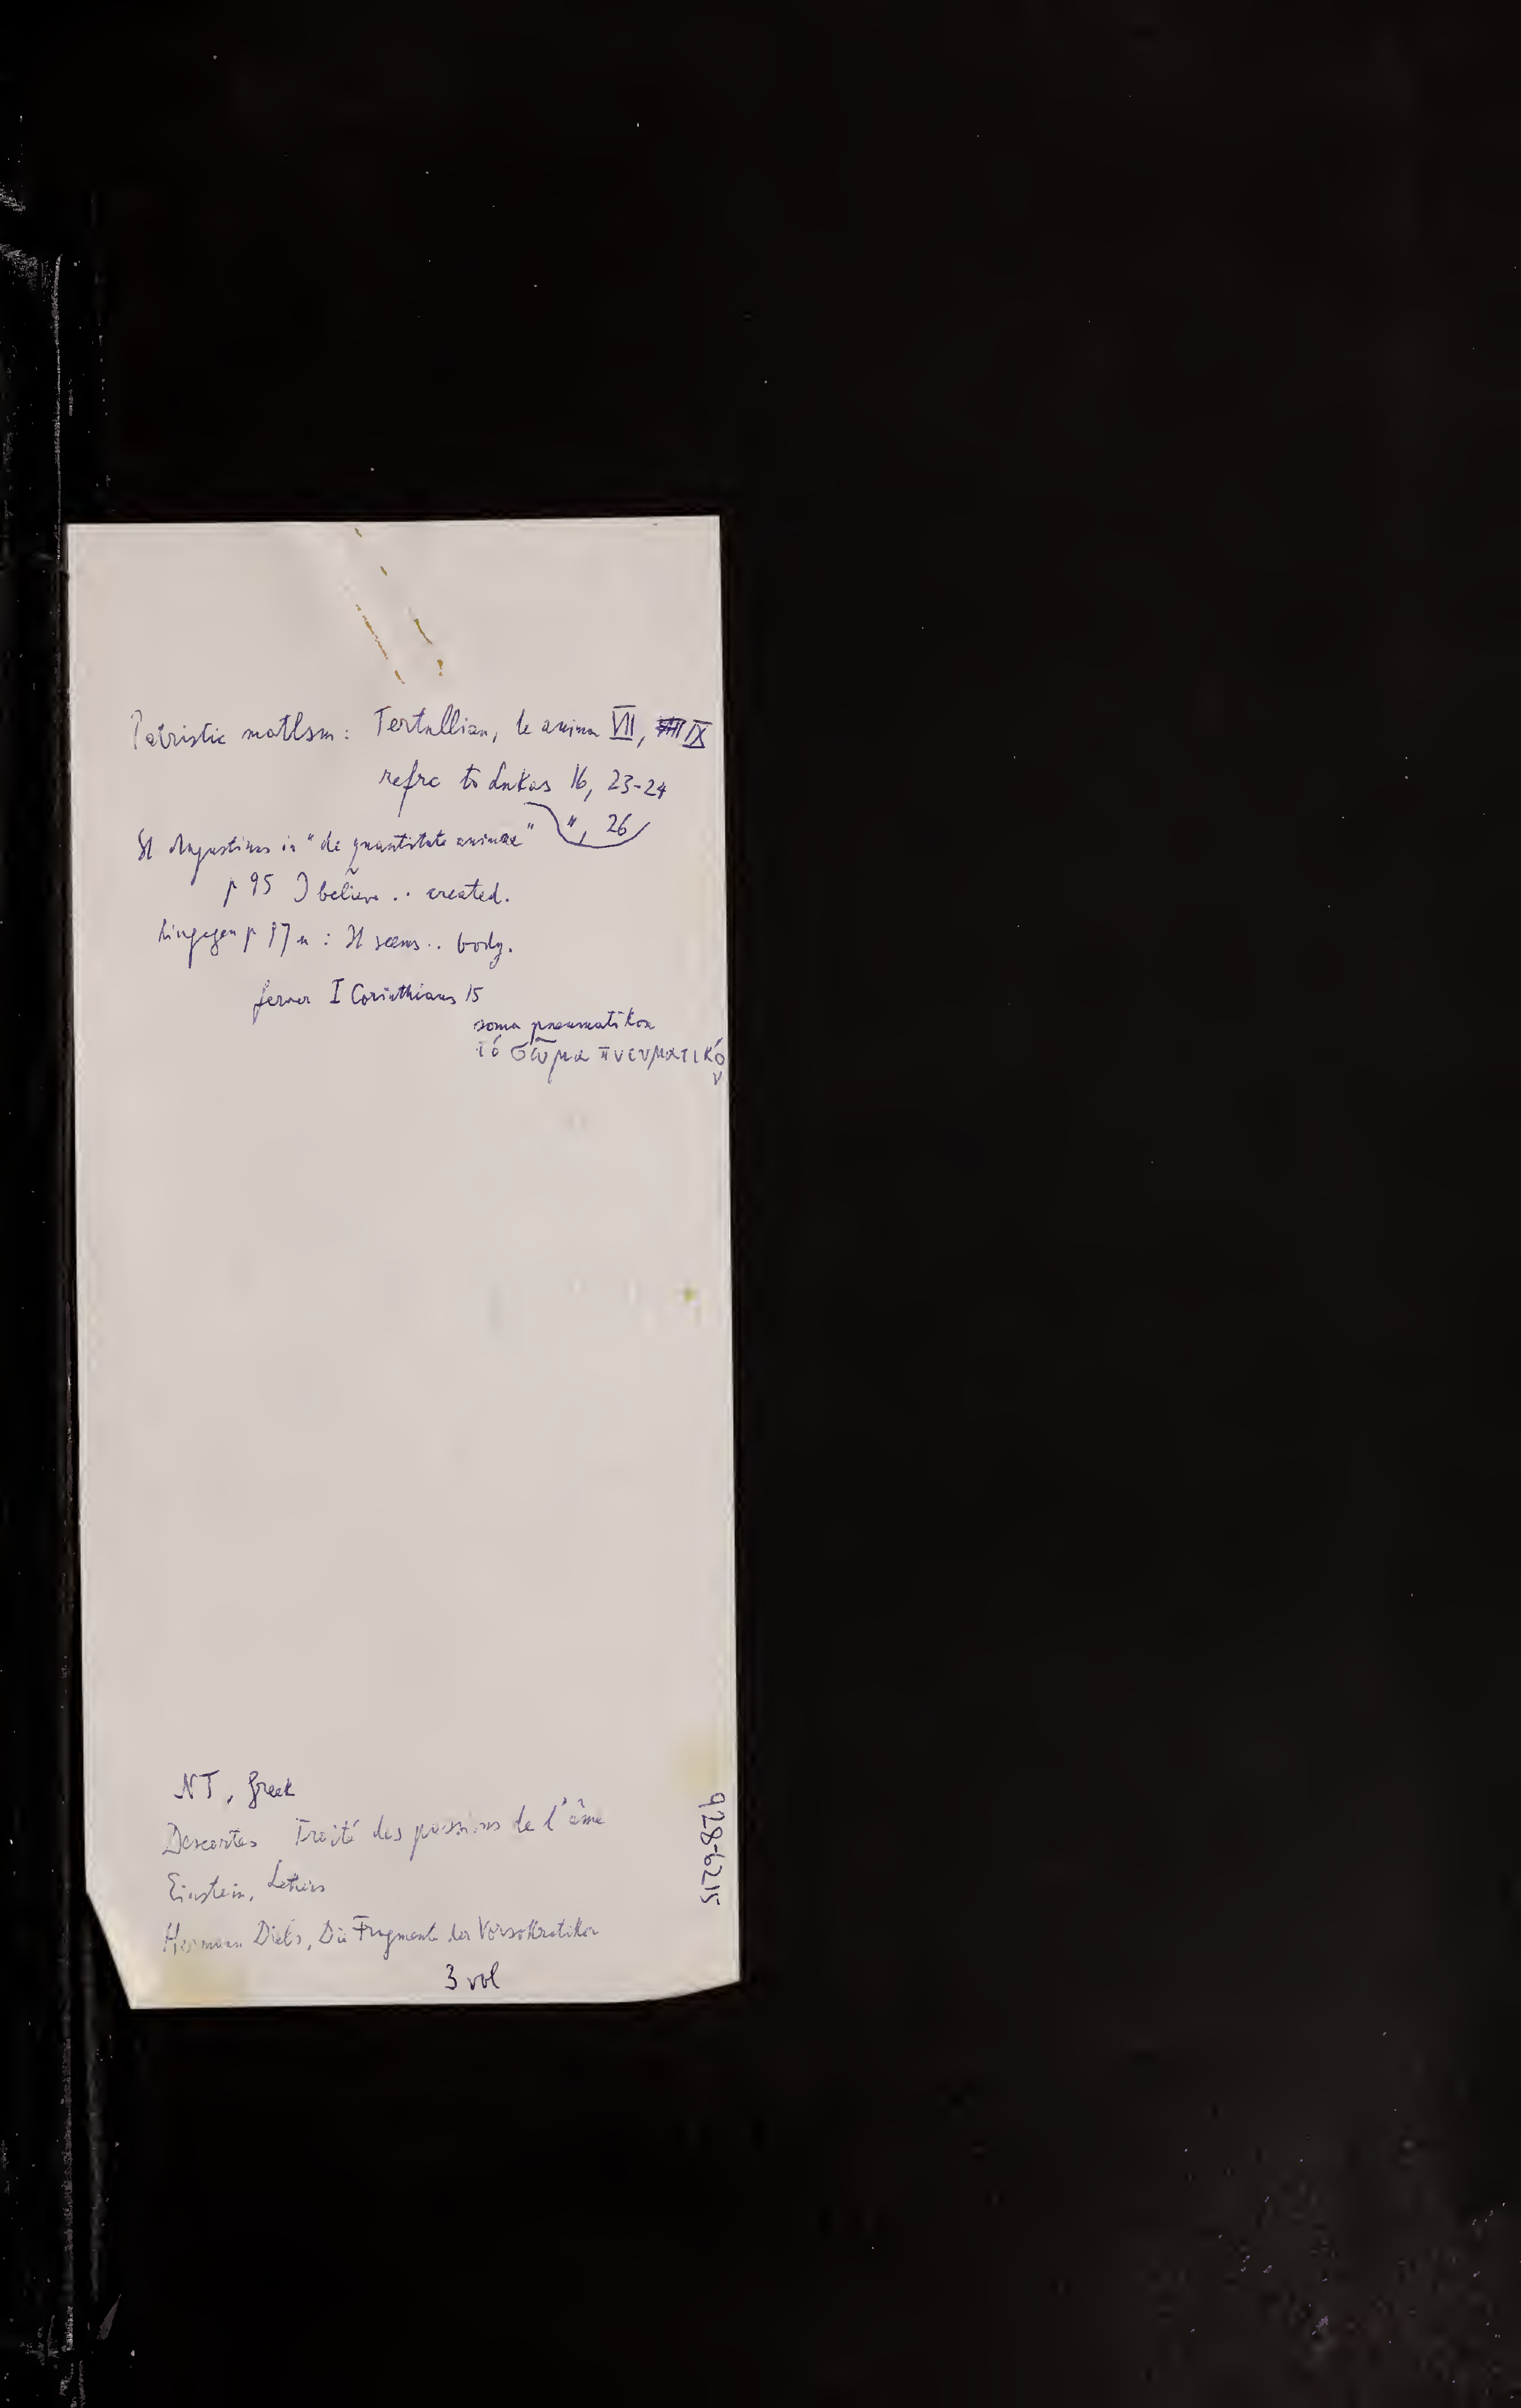 Patristic matlsm: Tertullian, de anima VII, IX
refrc to Lukas 16, 23-24
", 26
St Augustinus in "de quantitate animae"
p 95 I believe .. created.
hingegen p 97 n : It seems .. body.
ferner I Corinthians 15
soma pneumatikon
τό σῶμα πνευματικόν
NT, Greek
Descartes Traité des passions de l'âme
Einstein, Letters
Hermann Diels, Die Fragmente der Vorsokratiker
3 vol
928-6215